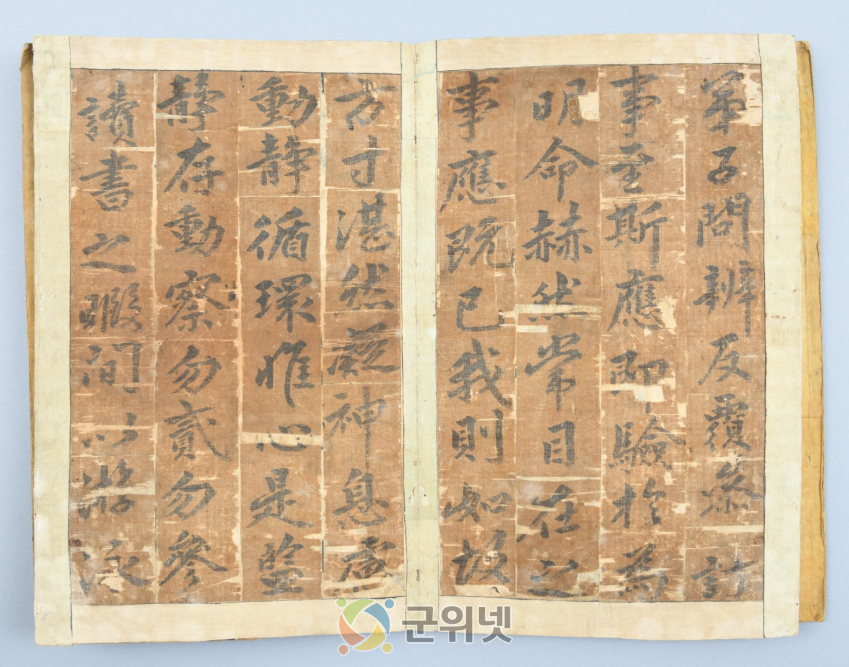 弟子問辨反覆參訂
事至斯應則驗於爲
明命赫然常目在之
事應既已我則如故
方寸湛然凝神息慮
動靜循環惟心是監
靜存動察勿貳勿參
讀書之暇間以游泳
군위넷